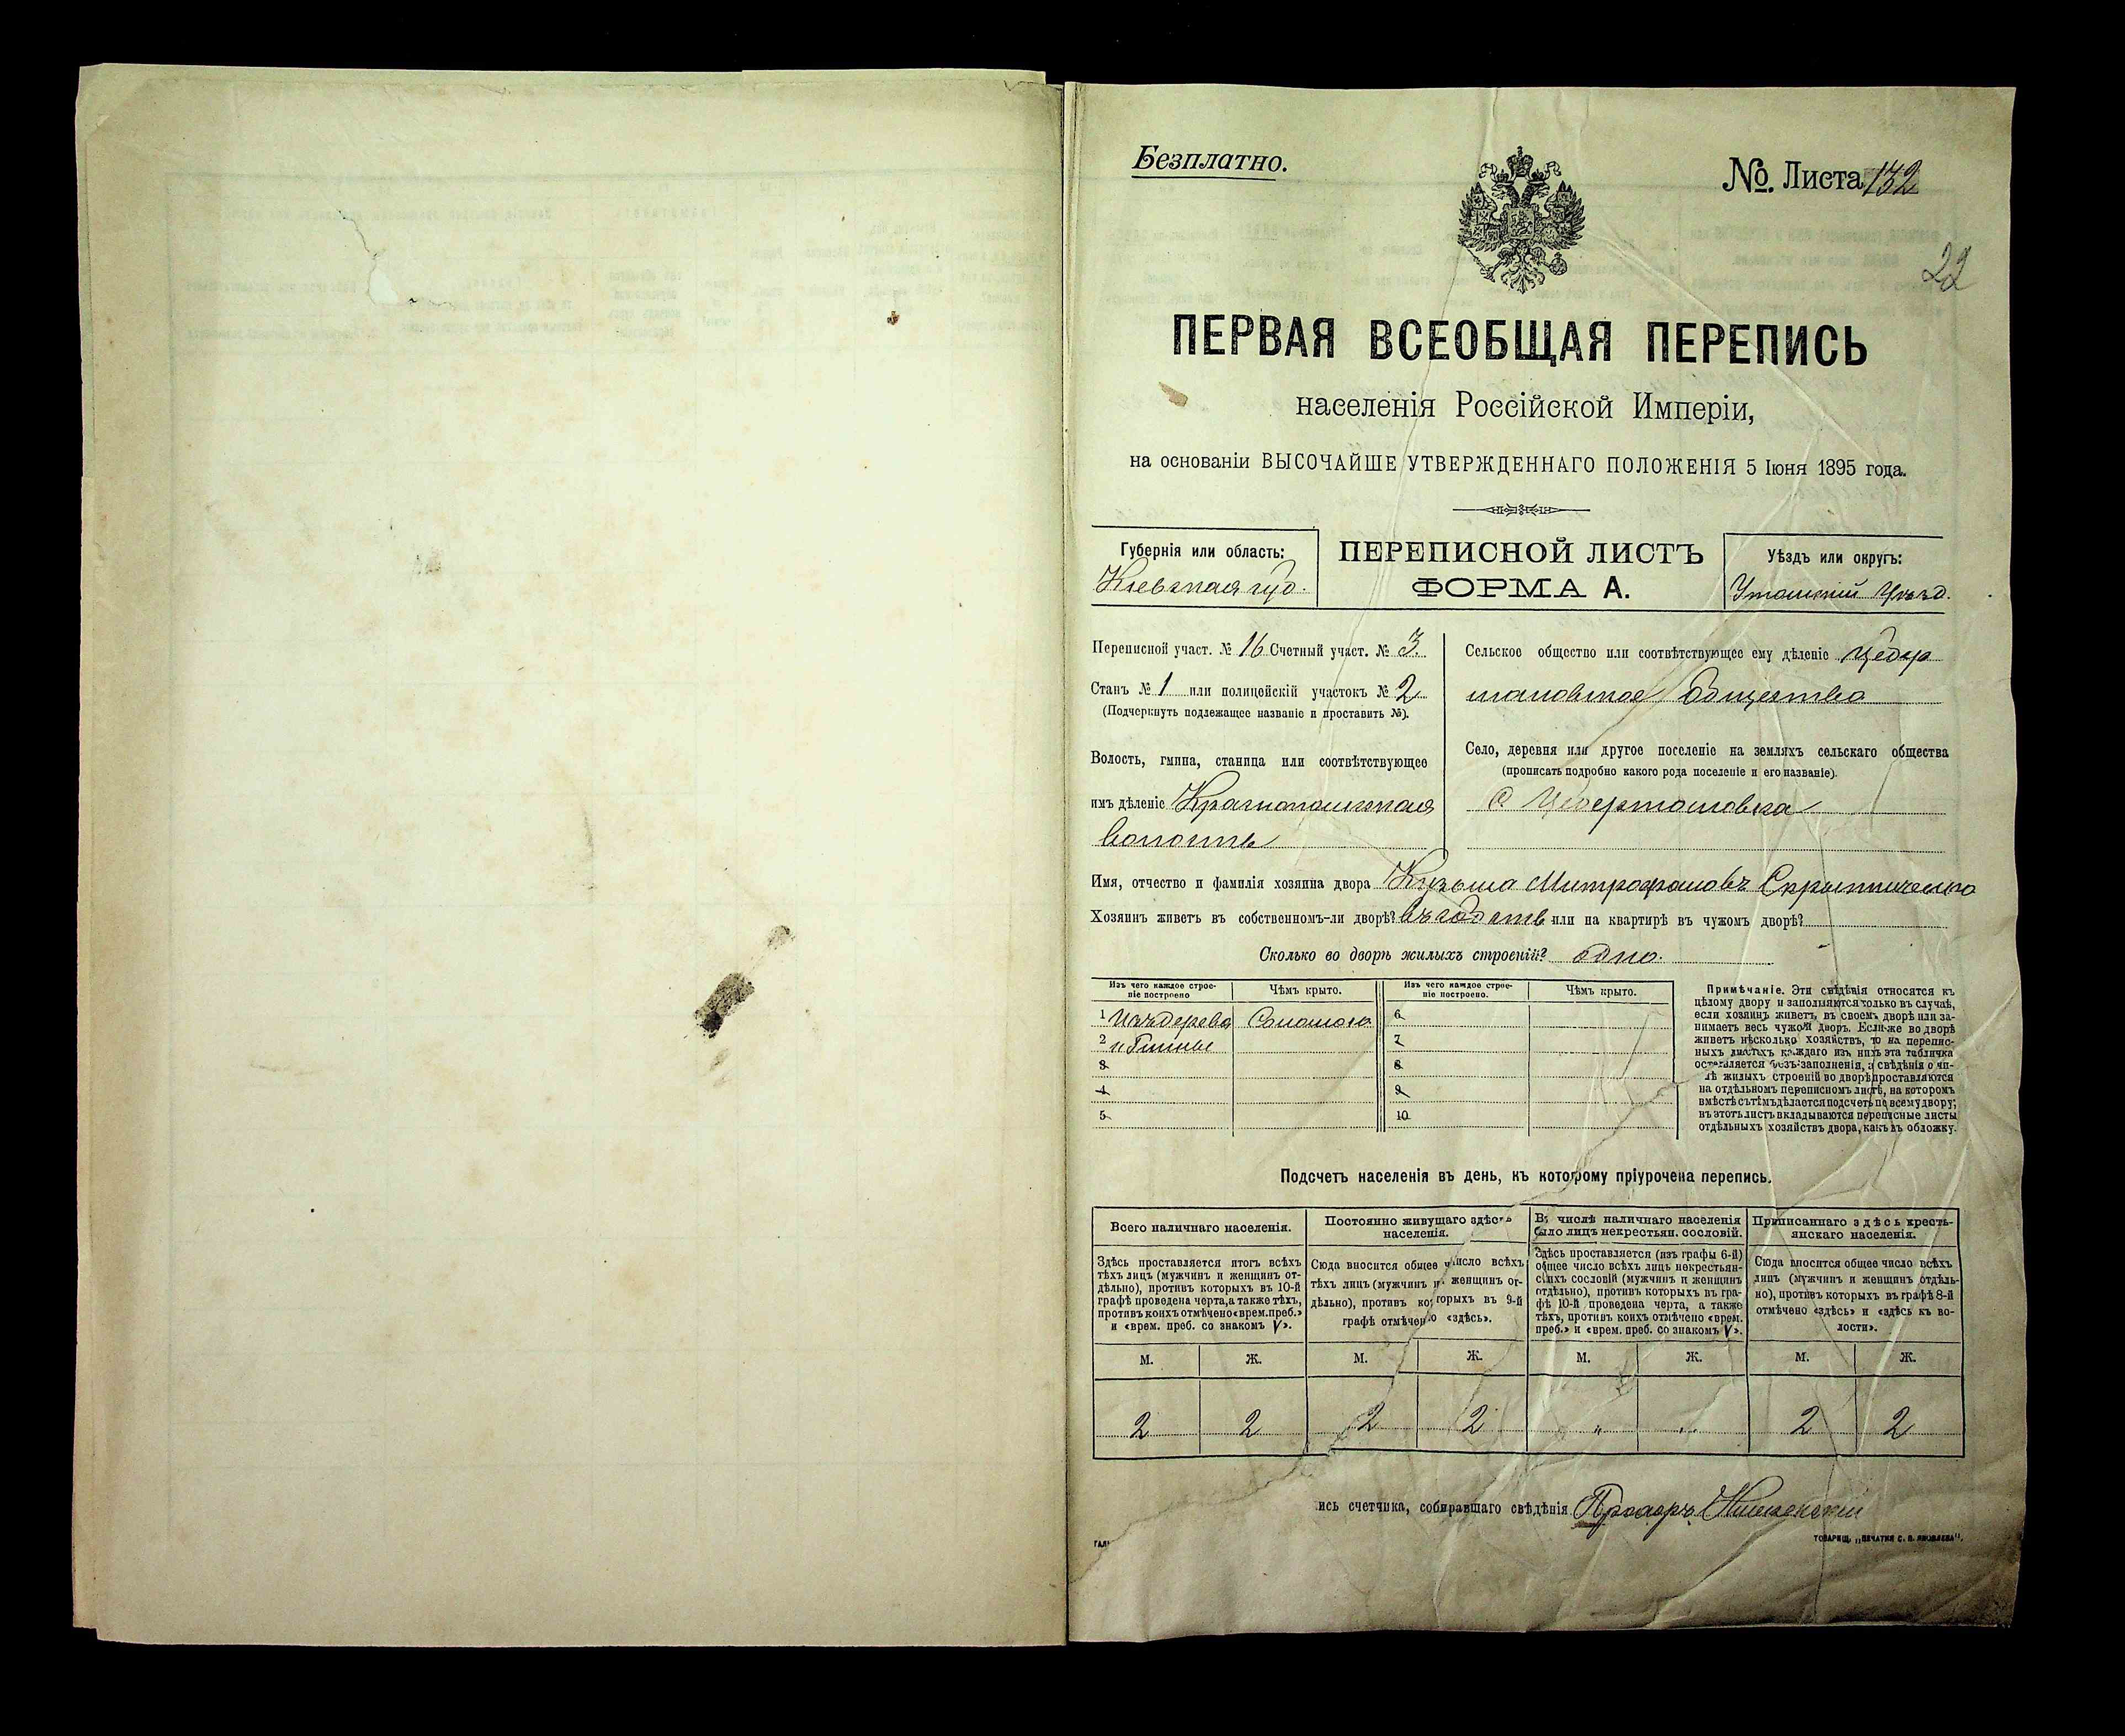 Безплатно.
№. Листа 132
22
ПЕРВАЯ ВСЕОБЩАЯ ПЕРЕПИСЬ
населенія Россійской Имперіи,
на основаніи ВЫСОЧАЙШЕ УТВЕРЖДЕННАГО ПОЛОЖЕНІЯ 5 Іюня 1895 года.
Губернія или область:
Кіевская губ.
ПЕРЕПИСНОЙ ЛИСТЪ
ФОРМА А.
Уѣздъ или округъ:
Уманскій Уѣзд.
Переписной участ. № 16 Счетный участ. № 3.
Станъ № 1 или полицейскій участокъ № 2
(Подчеркнуть подлежащее названіе и проставить №).
Волость, гмина, станица или соотвѣтствующее
имъ дѣленіе Краснопольская
Волость
Сельское общество или соотвѣтствующее ему дѣленіе Цебер
мановское Общество
Село, деревня или другое поселеніе на земляхъ сельскаго общества
(прописать подробно какого рода поселеніе и его названіе).
С. Цебермановка
Имя, отчество и фамилія хозяина двора Кузьма Митрофановъ
Хозяинъ живетъ въ собственномъ-ли дворѣ? или на квартирѣ въ чужомъ дворѣ?
Сколько во дворѣ жилыхъ строеній? одно.
Изъ чего каждое строе-
ніе построено
Чѣмъ крыто.
Изъ чего каждое строе-
ніе построено.
Чѣмъ крыто.
1 Изъ дерева Соломою 6
2 и Глины 7
3 8
4 9
5 10
Примѣчаніе. Эти свѣдѣнія относятся къ
цѣлому двору и заполняются только въ случаѣ,
если хозяинъ живетъ, въ своемъ дворѣ или за-
нимаетъ весь чужой дворъ. Если-же во дворѣ
живетъ нѣсколько хозяйствъ, то на перепис-
ныхъ листахъ каждаго изъ нихъ эта табличка
оставляется безъ заполненія, а свѣдѣнія о чи-
лѣ жилыхъ строеній во дворѣ проставляются
на отдѣльномъ переписномъ листѣ, на которомъ
вмѣстѣ съ тѣмъ дѣлается подсчетъ по всему двору;
въ этотъ листъ вкладываются переписные листы
отдѣльныхъ хозяйствъ двора, какъ въ обложку.
Подсчетъ населенія въ день, къ которому пріурочена перепись.
Всего наличнаго населенія.
Постоянно живущаго здѣсь
населенія.
Въ числѣ наличнаго населенія
было лицъ некрестьян. сословій.
Приписаннаго здѣсь кресть-
янскаго населенія.
Здѣсь проставляется итогъ всѣхъ
тѣхъ лицъ (мужчинъ и женщинъ от-
дѣльно), противъ которыхъ въ 10-й
графѣ проведена черта, а также тѣхъ,
противъ коихъ отмѣчено «врем. преб.»
и «врем. преб. со знакомъ V».
Сюда вносится общее число всѣхъ
тѣхъ лицъ (мужчинъ и женщинъ от-
дѣльно), противъ которыхъ въ 9-й
графѣ отмѣчено «здѣсь».
Здѣсь проставляется (изъ графы 6-й)
общее число всѣхъ лицъ некрестьян-
скихъ сословій (мужчинъ и женщинъ
отдѣльно), противъ которыхъ въ гра-
фѣ 10-й проведена черта, а также
тѣхъ, противъ коихъ отмѣчено «врем.
преб.» и «врем. преб. со знакомъ V».
Сюда вносится общее число всѣхъ
лицъ (мужчинъ и женщинъ отдѣль-
но), противъ которыхъ въ графѣ 8-й
отмѣчено «здѣсь» и «здѣсь къ во-
лости».
М. Ж. М. Ж. М. Ж. М. Ж.
2 2 2 2 " " 2 2
ись счетчика, собиравшаго свѣдѣнія
ТОВАРИЩ. „ПЕЧАТНЯ С. П. ЯКОВЛЕВА".